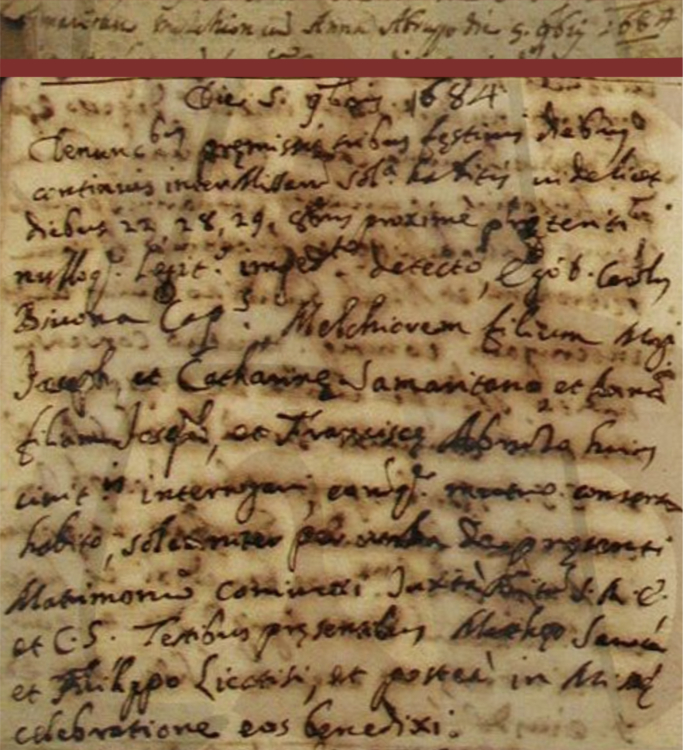 Melchion cum Anna Abruzo die 5. 9bris 1684
Die 5. 9bris 1684
Denunc.bus premissis tribus festivis diebus
continuis inter Missarum sol.a habitis videlicet
diebus 22, 28, 29, 8bris proxime preteriti
nulloq. legit.o imped.to detecto, Ego D. Carolus
Bivona Cap.s Melchiorem filium Mag.
Jacob, et Catharine Samaritano et Annã
filiam Joseph, et Francisce Abruzo huius
civit.is interrogavi, eorumq. mutuo consensu
habito, solemniter per verba de presenti
Matrimoniũ coniunxi Juxta S. R. E.
et C. S. Testibus presentibus Matheo
et Philippo Licatisi, et postea in Misse
celebratione eos benedixi.